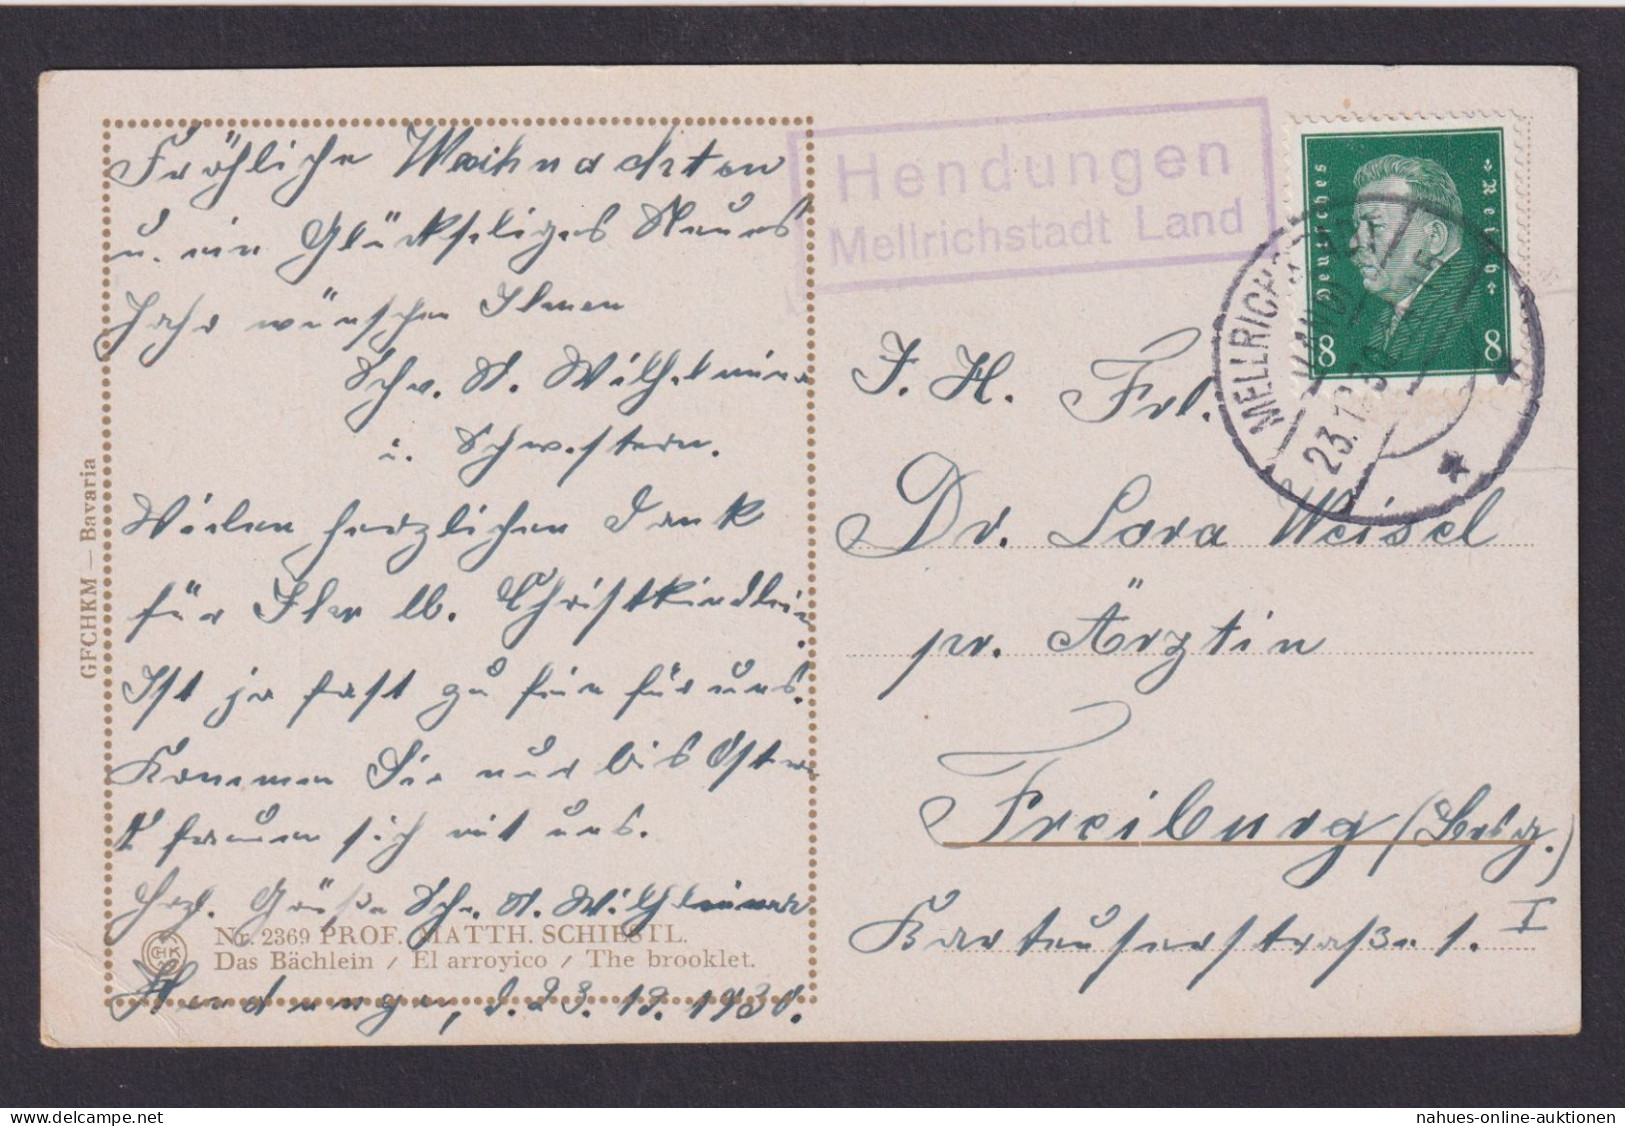 Fröhliche Weihnachten
u. ein Glückseliges Neues
Jahr wünschen Ihnen
Schw. M. Wilhelmina
u. Schwestern.
Vielen herzlichen Dank
für Ihr lb. Christkindlein.
Ist ja fast zu fein für uns.
Kommen Sie nur bis Ostern
freuen sich mit uns.
Herzl. Grüße Schw. M. Wilhelmina
Nr. 2369 PROF. MATTH. SCHIESTL.
Das Bächlein / El arroyico / The brooklet.
Hendungen, d. 23. 12. 1930.
GFCHKM — Bavaria
Hendungen
Mellrichstadt Land
Deutsches Reich
8 8
MELLRICHSTADT
LAND
23.12.30
I. H. Frl.
Dr. Lora Weisel
pr. Ärztin
Freiburg (Brsg.)
Kartäuserstraße 1. I
nahues-online-auktionen